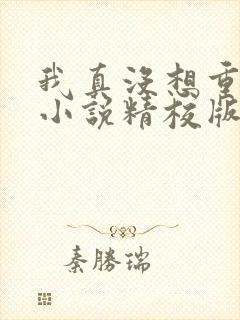 我真没想重
小说精校版
秦勝瑞